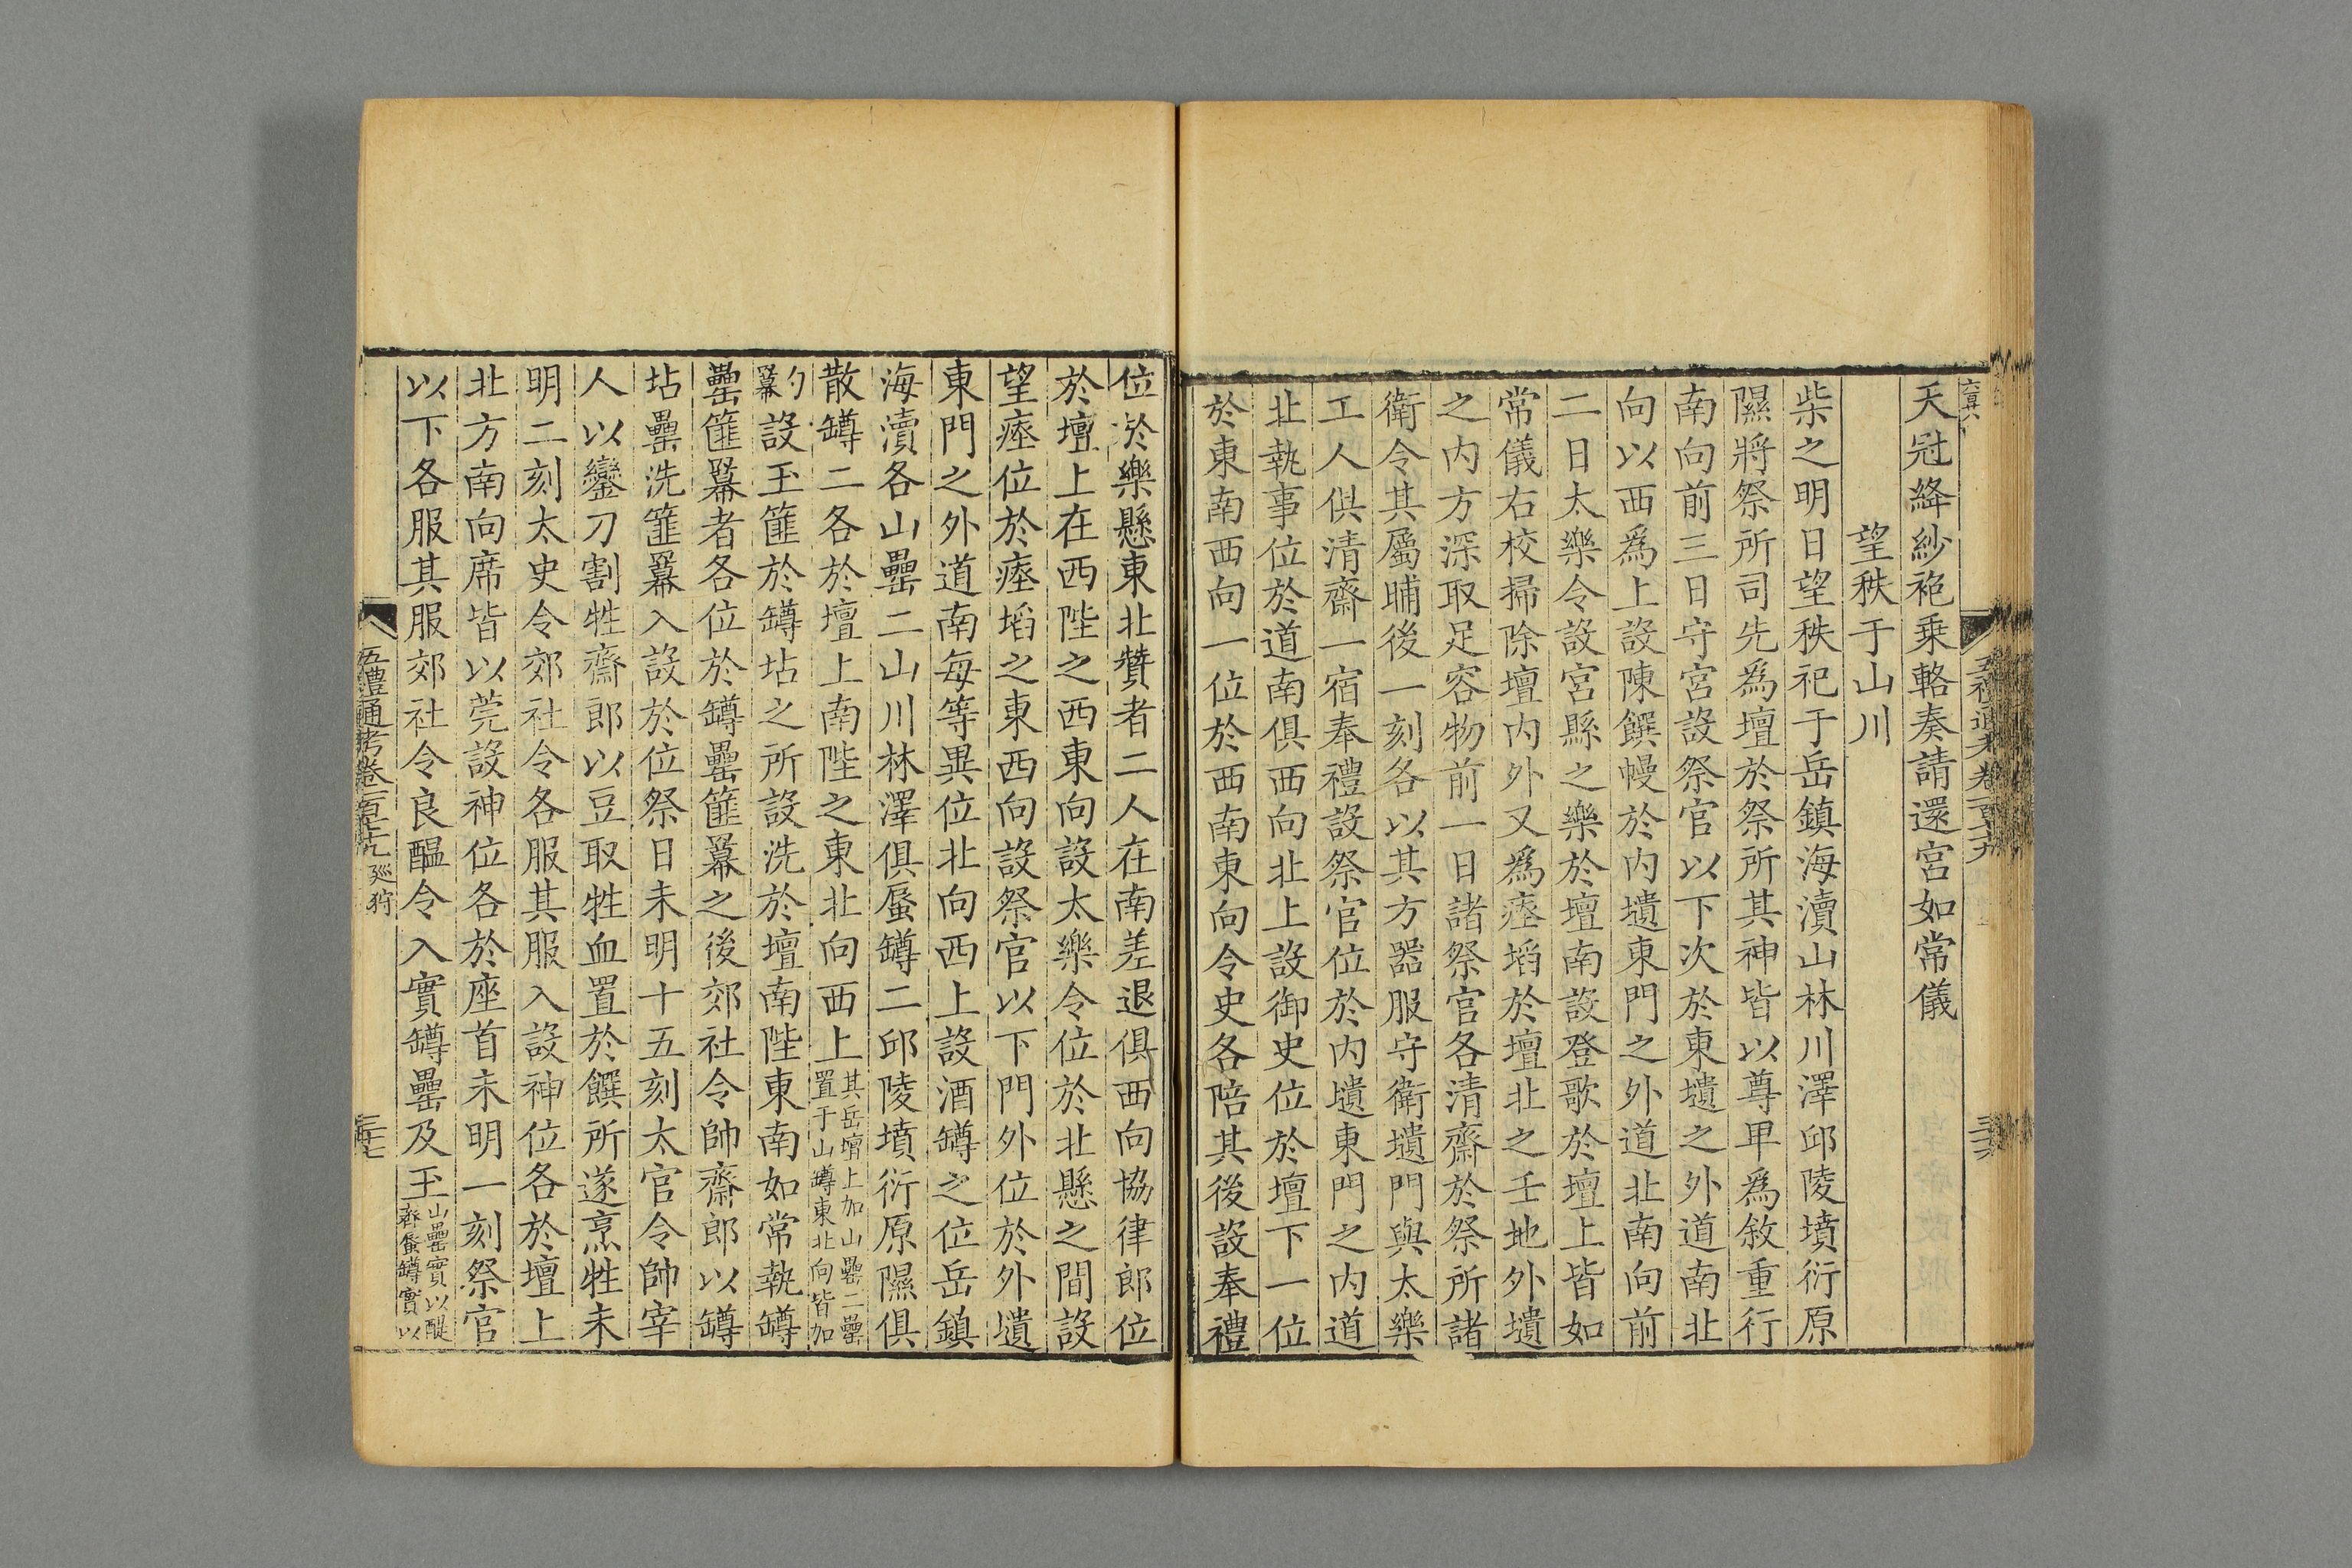 天冠絳紗袍乗輅奏請還宮如常儀
望秩于山川
柴之明日望秩祀于岳鎮海瀆山林川澤邱陵墳衍原
隰將祭所司先爲壇於祭所其神皆以尊卑爲敘重行
南向前三日守宮設祭官以下次於東壝之外道南北
向以西爲上設陳饌幔於内壝東門之外道北南向前
二日太樂令設宮縣之樂於壇南設登歌於壇上皆如
常儀右校掃除壇内外又爲瘞埳於壇北之壬地外壝
之内方深取足容物前一日諸祭官各清齋於祭所諸
衛令其屬晡後一刻各以其方器服守衛壝門與太樂
工人俱清齋一宿奉禮設祭官位於内壝東門之内道
北執事位於道南俱西向北上設御史位於壇下一位
於東南西向一位於西南東向令史各陪其後設奉禮
位於樂懸東北贊者二人在南差退俱西向協律郎位
於壇上在西陛之西東向設太樂令位於北懸之間設
望瘞位於瘞埳之東西向設祭官以下門外位於外壝
東門之外道南每等異位北向西上設酒罇之位岳鎮
海瀆各山罍二山川林澤俱蜃罇二邱陵墳衍原隰俱
散罇二各於壇上南陛之東北向西上其岳壇上加山罍二罍
置于山罇東北向皆加
勺
冪設玉篚於罇坫之所設洗於壇南陛東南如常執罇
罍篚冪者各位於罇罍篚冪之後郊社令帥齋郎以罇
坫罍洗篚冪入設於位祭日未明十五刻太官令帥宰
人以鑾刀割牲齋郎以豆取牲血置於饌所遂烹牲未
明二刻太史令郊社令各服其服入設神位各於壇上
北方南向席皆以莞設神位各於座首未明一刻祭官
以下各服其服郊社令良醞令入實罇罍及玉山罍實以醍
齊蜃罇實以
五禮通考卷一百七十九 廵狩
三七